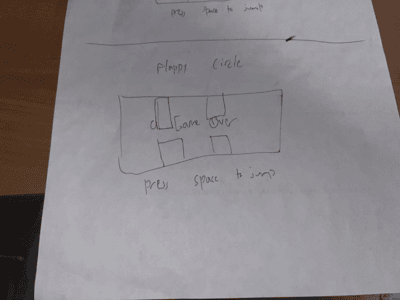 press space to jump
Flappy Circle
Game Over
press space to jump